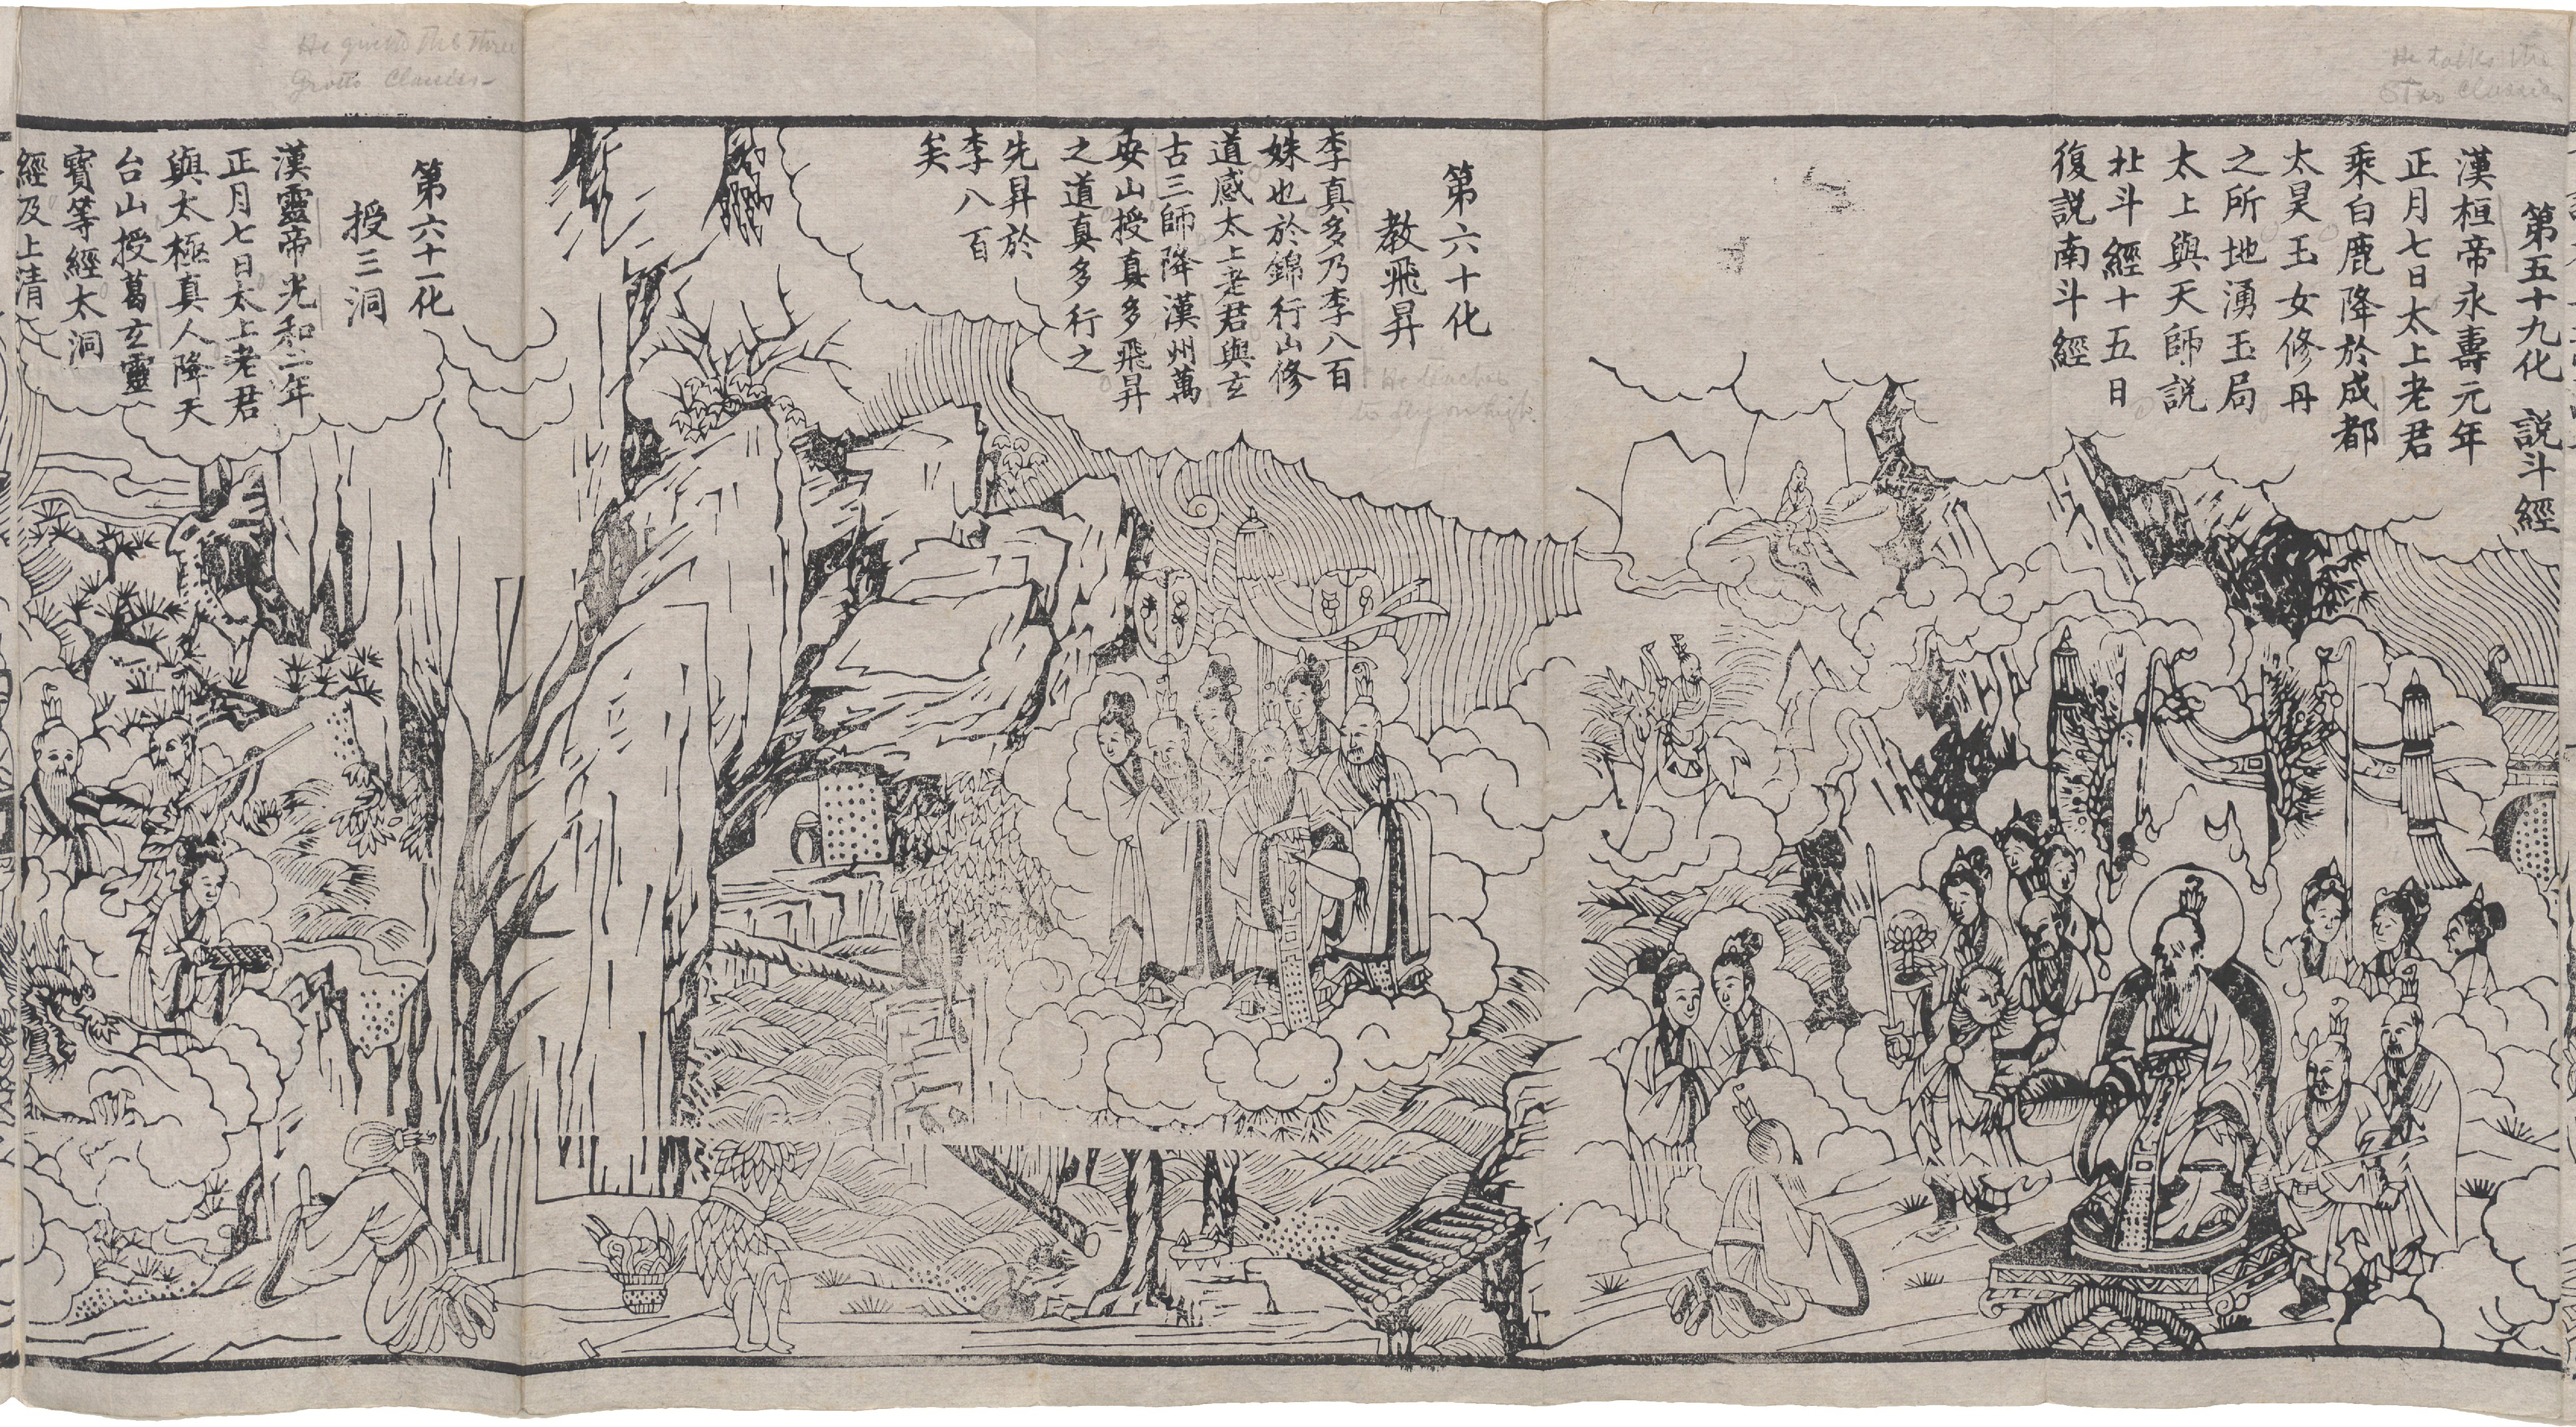 第五十九化 説斗經
漢桓帝永壽元年
正月七日太上老君
乘白鹿降於成都
太昊玉女修丹
之所地湧玉局
太上與天師説
北斗經十五日
復説南斗經
第六十化
教飛昇
李真多乃李八百
妹也於錦行山修
道感太上老君與玄
古三師降漢州萬
安山授真多飛昇
之道真多行之
先昇於
李八百
矣
第六十一化
授三洞
漢靈帝光和二年
正月七日太上老君
與太極真人降天
台山授葛玄靈
寳等經太洞
經及上清
He talks the
Star Classic
He teaches
to fly on high
Grotto Classics